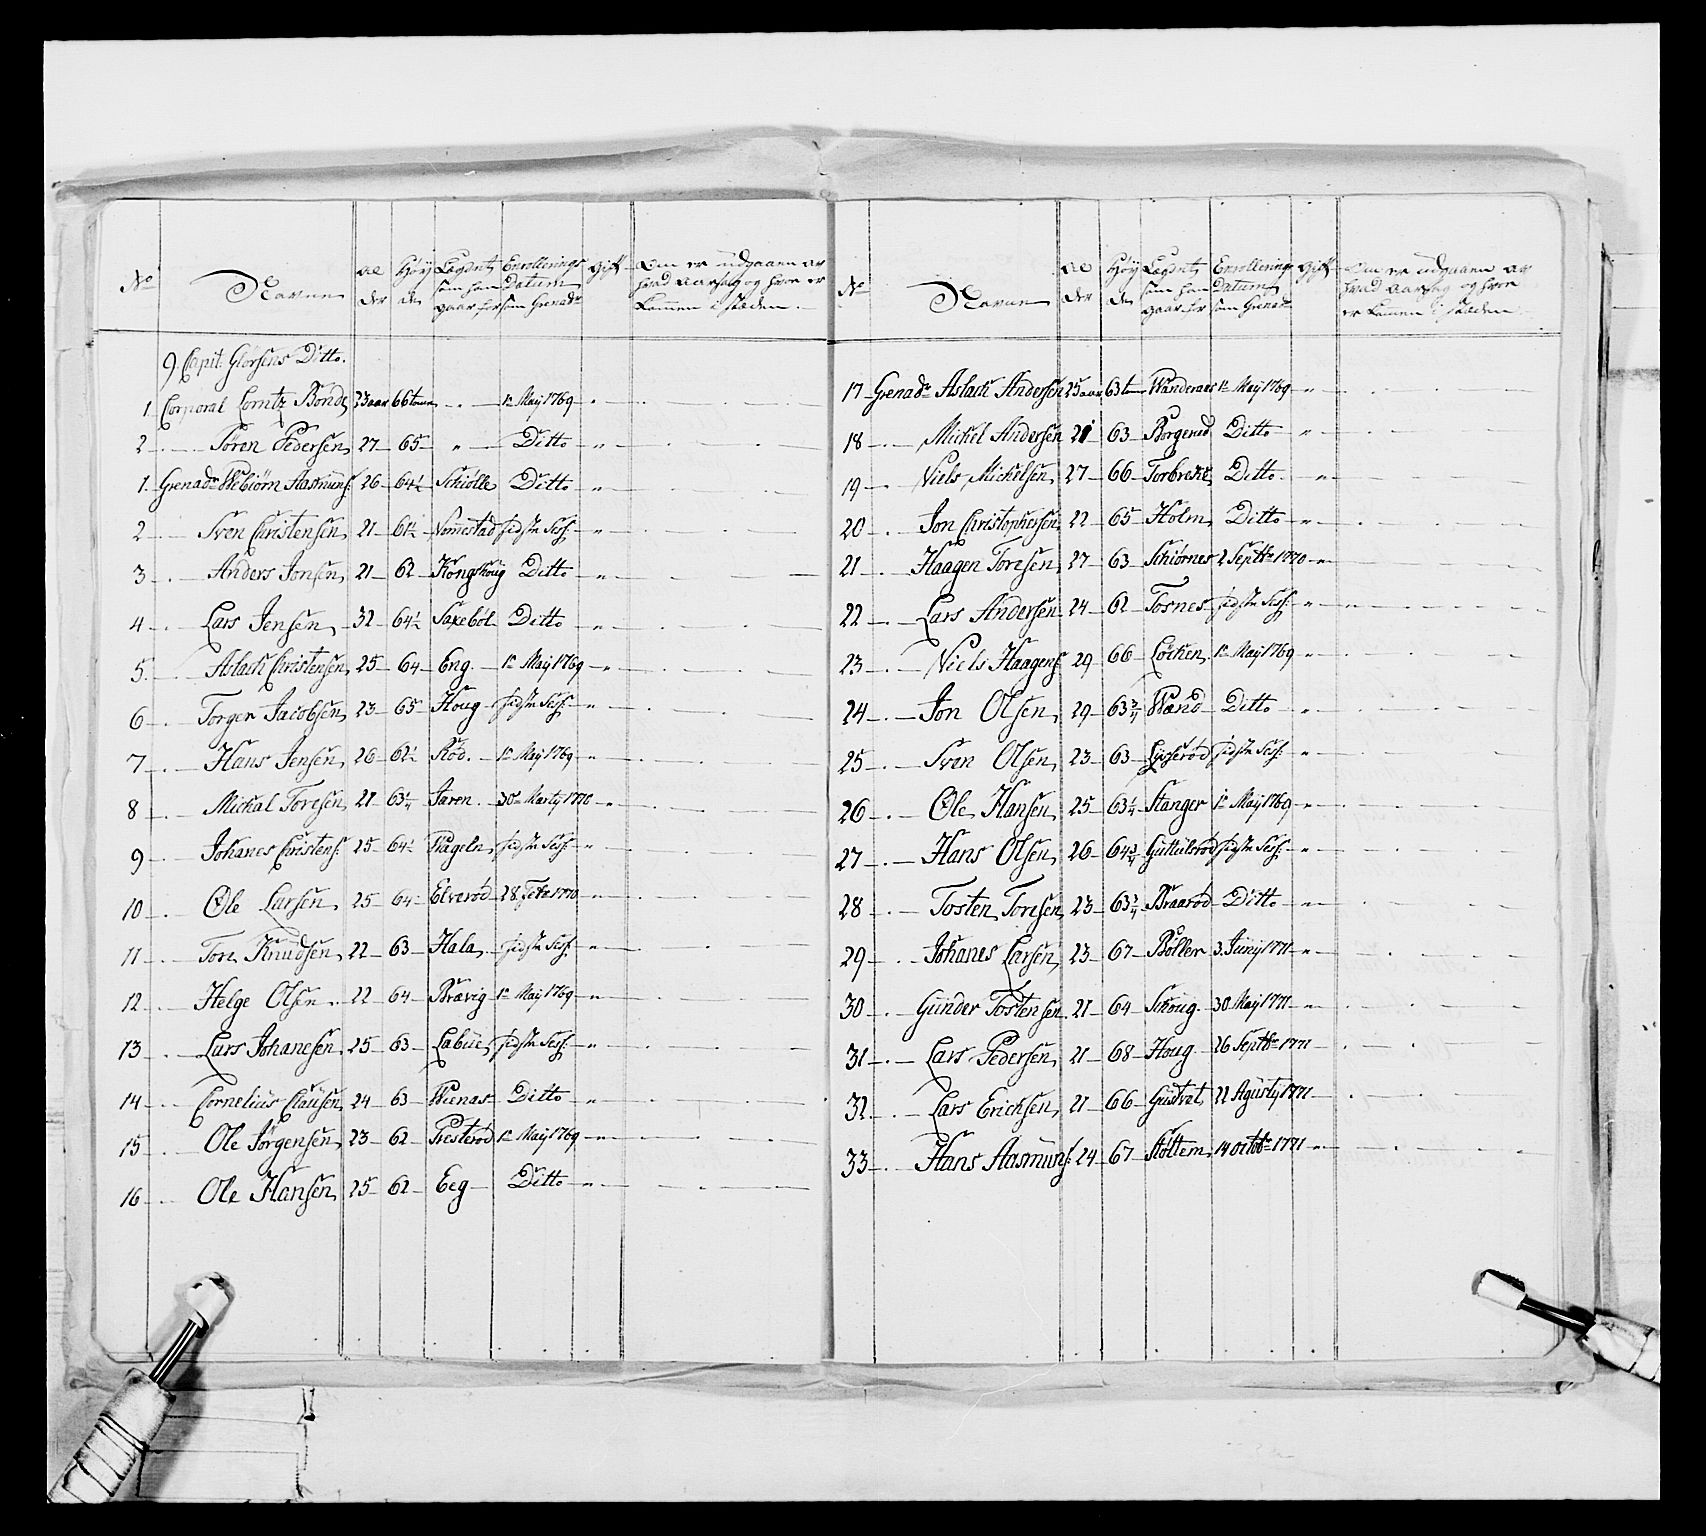 No Navne Al der Höy de Lægdet som han gaar for Enrollerings Datum som Grenadr Gift Om er udgaaen av hvad aarsag og hvem er kommen i stæden
9 Capit Glörsens Ditto.
1 Corporal Lorntz Bonde 23 aar 66 tom „ 1te Maij 1769 „
2 Sören Pedersen 27 65 „ Ditto „
1 Grenadr Webiörn Aasmuns: 26 64½ Schiolle Ditto „
2 Sven Christensen 21 61½ Nommestad sidste Sess: „
3 Anders Jonsen 21 62 Kongshoug Ditto „
4 Lars Jensen 32 64½ Saxebol Ditto „
5 Aslach Christensen 25 64 Eng. 1te Maij 1769 „
6 Torger Jacobsen 23 65 Houg sidste Sess: „
7 Hans Jensen 26 62½ Röd. 1te Maij 1769 „
8 Michal Toresen 21 63¼ Jaren. 30te Marty 1770 „
9 Johanes Christens: 25 64½ Wageln sidste Sess: „
10 Ole Larsen 25 64 Elveröd 28 Febr 1770 „
11 Tor Knudsen 22 63 Hala sidste Sess: „
12 Helge Olsen 22 64 Brævig 1te Maij 1769 „
13 Lars Johanesen 25 63 Labue sidste Sess: „
14 Cornelius Clausen 24 63 Wienas Ditto „
15 Ole Jörgensen 23 62 Presteröd 1te Maij 1769 „
16 Ole Hansen 25 62 Eeg Ditto „
No Navne Al der Höy de Lægdet som han gaar for Enrollerings Datum som Grenadr Gift Om er udgaaen av hvad aarsag og hvem er kommen i stæden
17 Grenadr Aslach Andersen 25 aar 63 tom Wanderaas 1te Maij 1769 „
18 Michel Andersen 21 63 Borgerud Ditto „
19 Niels Michelsen 27 66 Torbrekke Ditto „
20 Jon Christophersen 22 65 Holm Ditto „
21 Haagen Toresen 27 63 Schiörnes 2 Septbr 1770 „
22 Lars Andersen 24 62 Fosnes sidste Sess: „
23 Niels Haagens: 29 66 Löcken 1te Maij 1769 „
24 Jon Olsen 29 63¾ Wand Ditto „
25 Sven Olsen 23 63 Lyseröd sidste Sess: „
26 Ole Hansen 25 63¼ Stanger 1te Maij 1769 „
27 Hans Olsen 26 64¾ Guttulsröd sidste Sess: „
28 Tosten Toresen 23 63¾ Braaröd Ditto „
29 Johanes Larsen 23 67 Böller 3 Junij 1771 „
30 Gunder Tostensen 21 64 Schoug 30 Maij 1771 „
31 Lars Pedersen 21 68 Houg 26 Septbr 1771
32 Lars Erichsen 21 66 Gustvet 22 Agusty 1771
33 Hans Aasmuns: 24 67 Stöttem 14 Octobr 1771 „